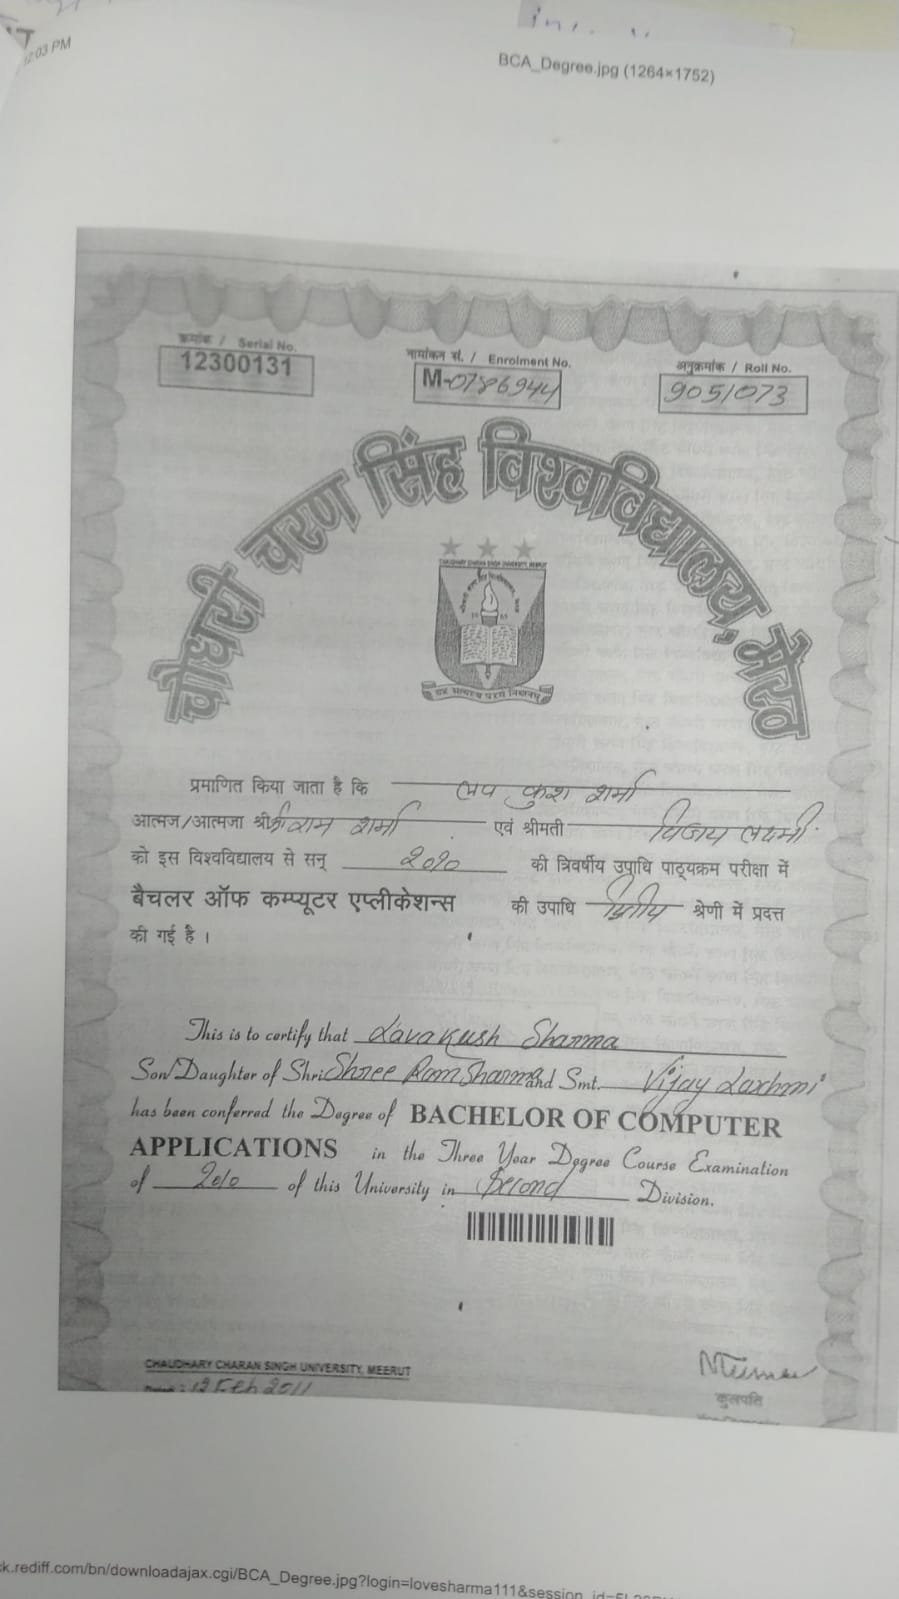 12:03 PM
BCA_Degree.jpg (1264×1752)
क्रमांक / Serial No.
12300131
नामांकन सं. / Enrolment No.
M-0786944
अनुक्रमांक / Roll No.
9051073
चौधरी चरण सिंह विश्वविद्यालय, मेरठ
CHAUDHARY CHARAN SINGH UNIVERSITY, MEERUT
प्रमाणित किया जाता है कि लव कुश शर्मा
आत्मज/आत्मजा श्री श्री राम शर्मा एवं श्रीमती विजय लक्ष्मी
को इस विश्वविद्यालय से सन् २०१० की त्रिवर्षीय उपाधि पाठ्यक्रम परीक्षा में
बैचलर ऑफ कम्प्यूटर एप्लीकेशन्स की उपाधि द्वितीय श्रेणी में प्रदत्त
की गई है ।
This is to certify that Lavakush Sharma
Son/Daughter of Shri Shree Ram Sharma and Smt. Vijay Laxhmi
has been conferred the Degree of BACHELOR OF COMPUTER
APPLICATIONS in the Three Year Degree Course Examination
of 2010 of this University in Second Division.
CHAUDHARY CHARAN SINGH UNIVERSITY, MEERUT
12 Feb 2011
कुलपति
k.rediff.com/bn/downloadajax.cgi/BCA_Degree.jpg?login=lovesharma111&session_id=